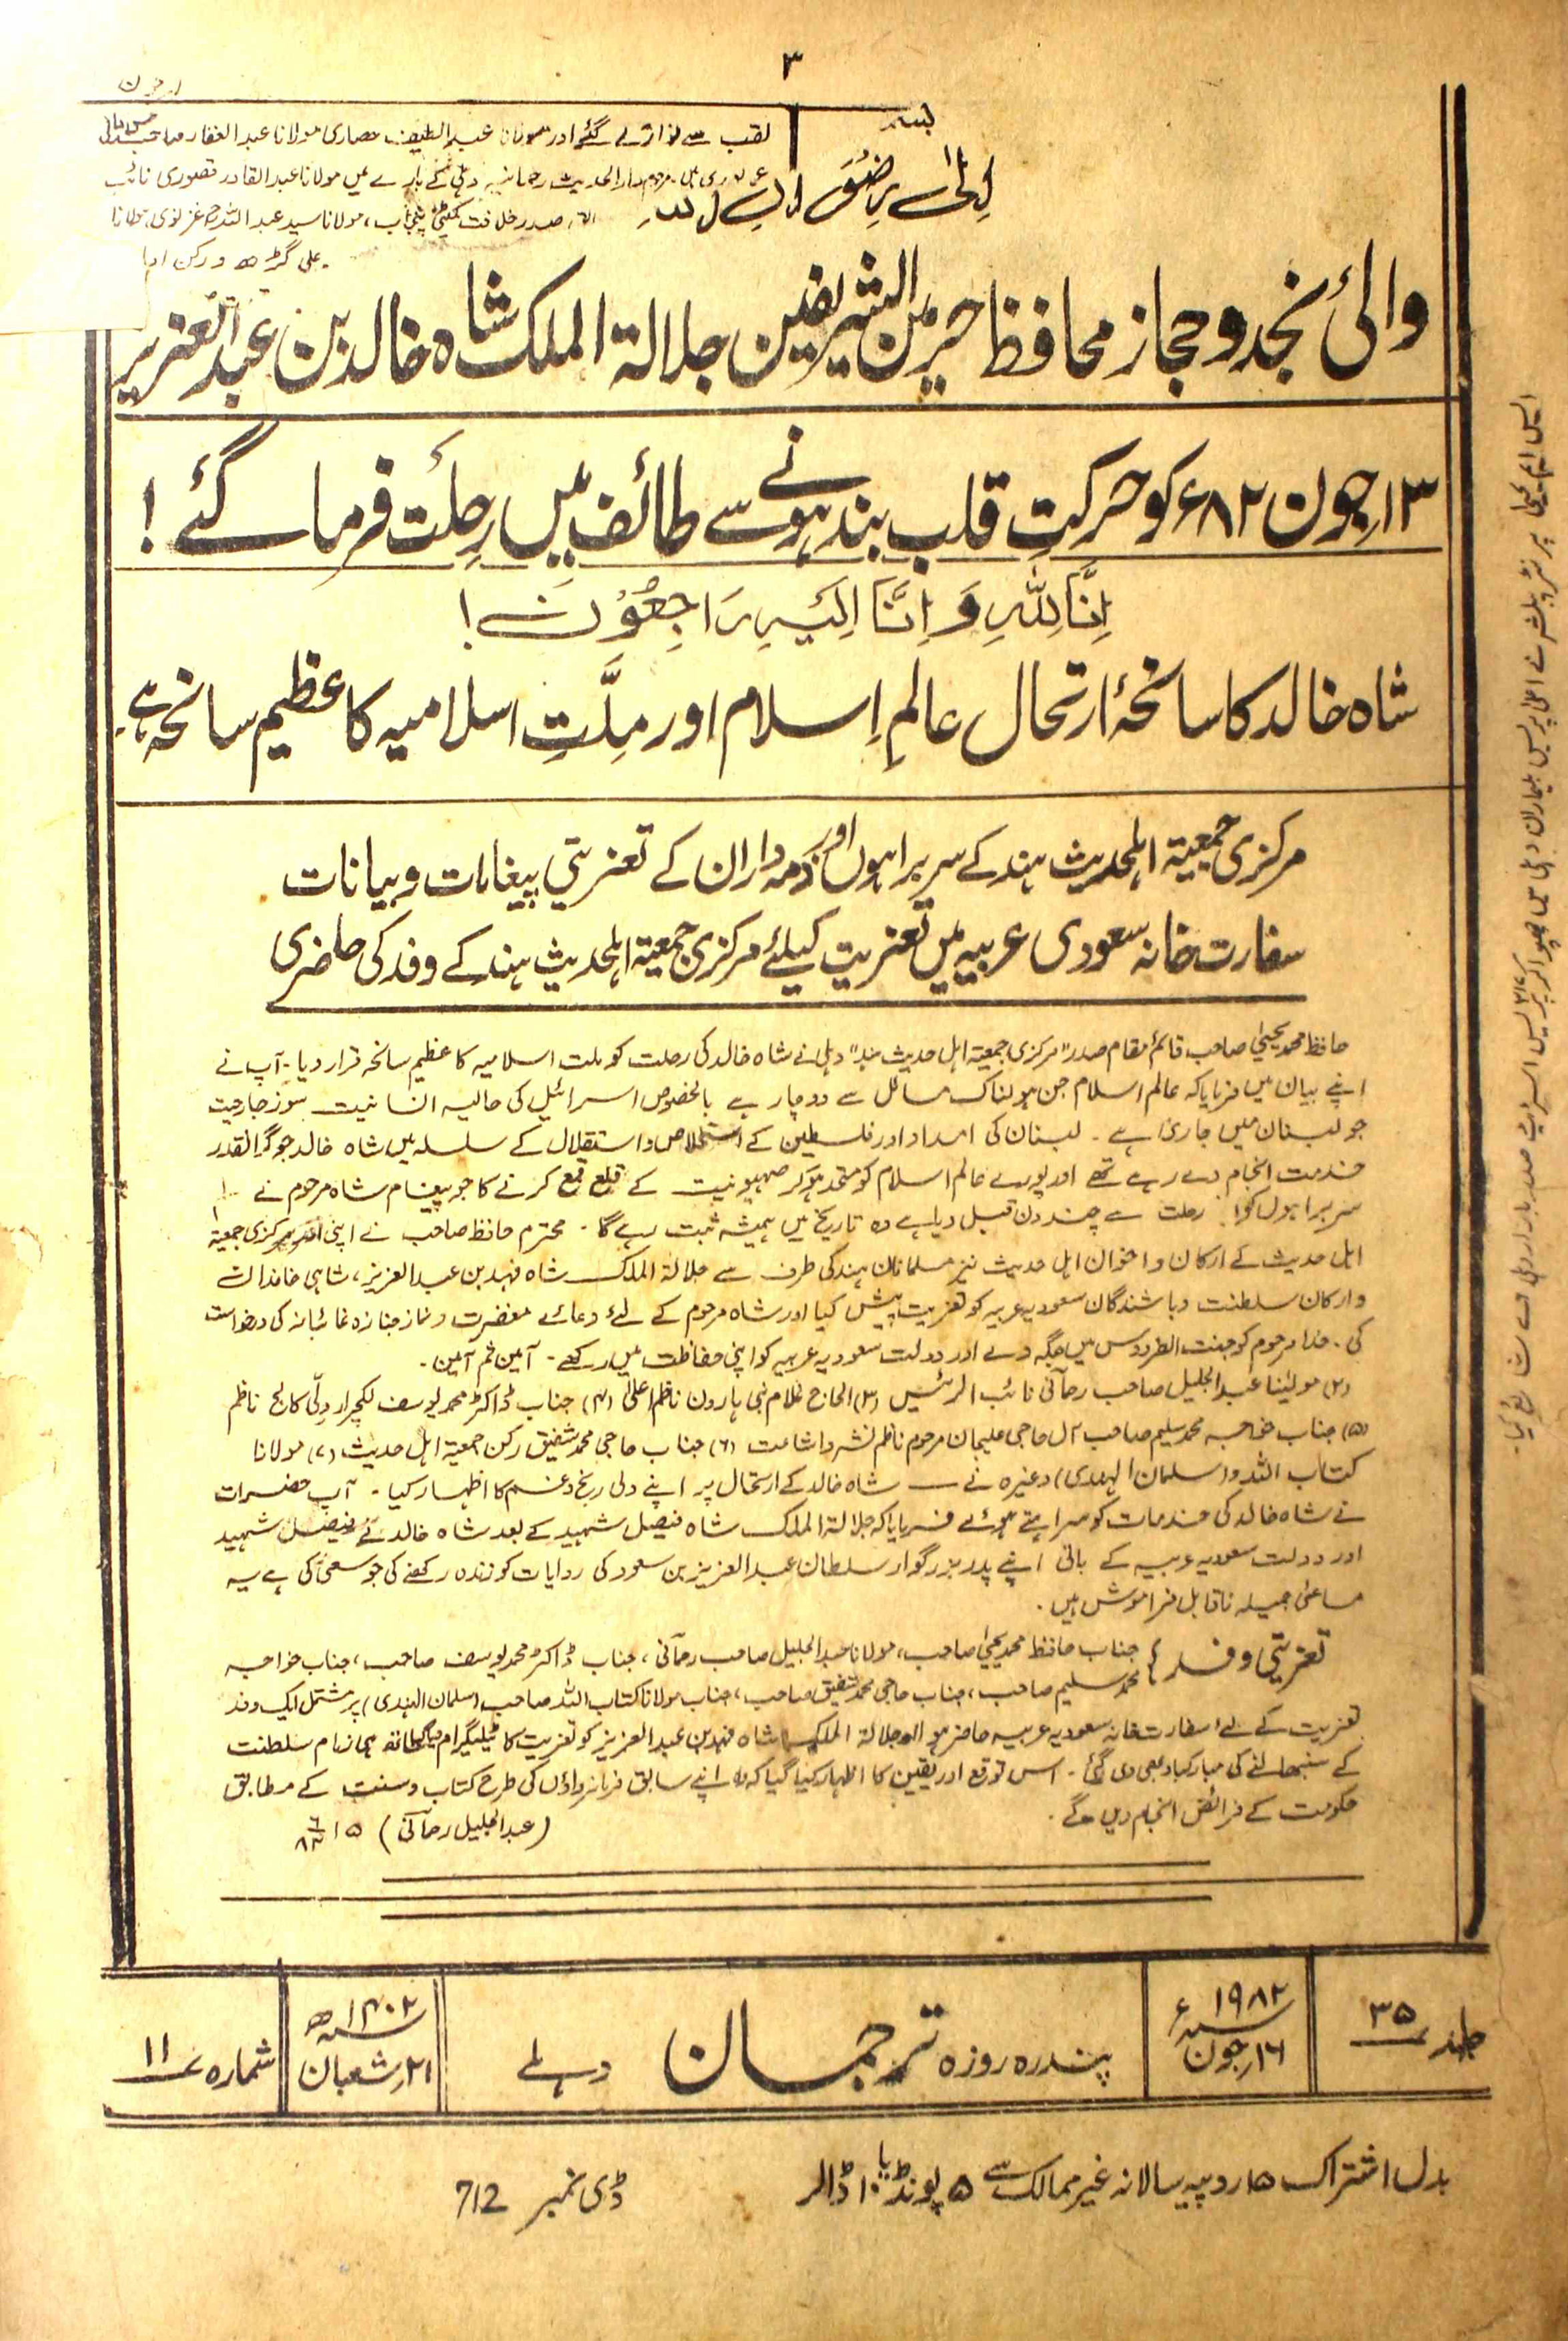 ۳
لقب سے نوازے گئے اور مولانا عبد اللطیف حصاری مولانا عبد الغفار
دار الحدیث رحمانیہ دہلی کے بارے میں مولانا عبد القادر قصوری نائب
صدر خلافت کمیٹی پنجاب، مولانا سید عبد اللہ غزنوی
علی گڑھ و رکن
والئ نجد و حجاز محافظ حرمین الشریفین جلالۃ الملک شاہ خالد بن عبد العزیز
۱۳ جون ۸۲ء کو حرکتِ قلب بند ہونے سے طائف میں رحلت فرما گئے!
اِنَّا لِلّٰہِ وَ اِنَّا اِلَیْہِ رَاجِعُوْنَ!
شاہ خالد کا سانحۂ ارتحال عالمِ اِسلام اور مِلَّتِ اسلامیہ کا عظیم سانحہ ہے۔
مرکزی جمعیۃ اہلحدیث ہند کے سربراہوں اور ذمہ داران کے تعزیتی پیغامات و بیانات
سفارت خانہ سعودی عربیہ میں تعزیت کیلئے مرکزی جمعیۃ اہلحدیث ہند کے وفد کی حاضری
حافظ محمد یحییٰ صاحب قائم مقام صدر "مرکزی جمعیۃ اہل حدیث ہند" دہلی نے شاہ خالد کی رحلت کو ملت اسلامیہ کا عظیم سانحہ قرار دیا۔ آپ نے
اپنے بیان میں فرمایا کہ عالم اسلام جن ہولناک مسائل سے دوچار ہے بالخصوص اسرائیل کی حالیہ انسانیت سوز جارحیت
جو لبنان میں جاری ہے۔ لبنان کی امداد اور فلسطین کے استخلاص و استقلال کے سلسلہ میں شاہ خالد جو گرانقدر
خدمت انجام دے رہے تھے اور پورے عالم اسلام کو متحد ہو کر صہیونیت کے قلع قمع کرنے کا جو پیغام شاہ مرحوم نے
سربراہوں کو رحلت سے چند دن قبل دیا ہے وہ تاریخ میں ہمیشہ ثبت رہے گا۔ محترم حافظ صاحب نے اپنی اور مرکزی جمعیۃ
اہل حدیث کے ارکان و اخوان اہل حدیث نیز مسلمانان ہند کی طرف سے جلالۃ الملک شاہ فہد بن عبد العزیز، شاہی خاندان
و ارکان سلطنت و باشندگان سعودیہ عربیہ کو تعزیت پیش کیا اور شاہ مرحوم کے لئے دعائے مغفرت و نماز جنازہ غائبانہ کی درخواست
کی۔ خدا مرحوم کو جنت الفردوس میں جگہ دے اور دولت سعودیہ عربیہ کو اپنی حفاظت میں رکھے۔ آمین ثم آمین۔
(۲) مولینا عبد الجلیل صاحب رحمآنی نائب الرئیس (۳) الحاج غلام نبی ہارون ناظم اعلیٰ (۴) جناب ڈاکٹر محمد یوسف لکچرار دلّی کالج ناظم
(۵) جناب خواجہ محمد سلیم صاحب آل حاجی علیجان مرحوم ناظم نشر و اشاعت (۶) جناب حاجی محمد شفیق رکن جمعیۃ اہل حدیث (۷) مولانا
کتاب اللہ و (سلمان الہندی) وغیرہ نے ـــ شاہ خالد کے ارتحال پر اپنے دلی رنج و غم کا اظہار کیا۔ آپ حضرات
نے شاہ خالد کی خدمات کو سراہتے ہوئے فرمایا کہ جلالۃ الملک شاہ فیصل شہید کے بعد شاہ خالد نے فیصل شہید
اور دولت سعودیہ عربیہ کے بانی اپنے پدر بزرگوار سلطان عبد العزیز بن سعود کی روایات کو زندہ رکھنے کی جو سعی کی ہے یہ
مساعئ جمیلہ ناقابل فراموش ہیں۔
تعزیتی وفد: جناب حافظ محمد یحییٰ صاحب، مولانا عبد الجلیل صاحب رحمآنی، جناب ڈاکٹر محمد یوسف صاحب، جناب خواجہ
محمد سلیم صاحب، جناب حاجی محمد شفیق صاحب، جناب مولانا کتاب اللہ صاحب (سلمان الہندی) پر مشتمل ایک وفد
تعزیت کے لے سفارت خانہ سعودیہ عربیہ حاضر ہوا اور جلالۃ الملک شاہ فہد بن عبد العزیز کو تعزیت کا ٹیلیگرام دیا ساتھ ہی زمام سلطنت
کے سنبھالنے کی مبارکباد بھی دی گئی۔ اس توقع اور یقین کا اظہار کیا گیا کہ وہ اپنے سابق فرمانرواؤں کی طرح کتاب و سنت کے مطابق
حکومت کے فرائض انجام دیں گے۔
(عبد الجلیل رحمآنی) ۱۵
جلد ۳۵
۱۹۸۲ء
۱۶ جون
پندرہ روزہ ترجمان دہلی
۱۴۰۲ھ
۲۱ شعبان
شمارہ ۱۱
بدل اشتراک ۱۵ روپیہ سالانہ غیر ممالک سے ۵ پونڈ یا ۱۰ ڈالر
ڈی نمبر 712